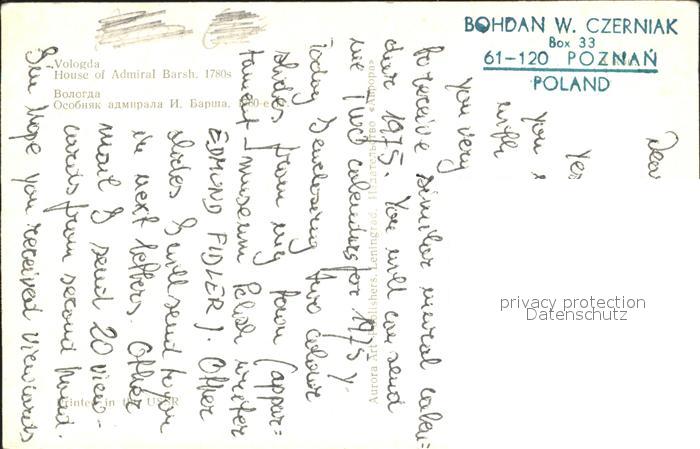 BOHDAN W. CZERNIAK
Box 33
61-120 POZNAŃ
POLAND
Vologda
House of Admiral Barsh. 1780s
Вологда
Особняк адмирала И. Барша.
Aurora Art Publishers, Leningrad. Издательство «Аврора»
Printed in the USSR
Dear
Yes
you
with
you very
to receive similar mural calen=
dar 1975. You will can send
me TWO calendars for 1975).
Today I enclosing two colour
slides from my town (appar=
tament-museum Polish writer
EDMUND FIDLER). Other
slides I will send to you
in next letters. Other
mail I send 20 view-
cards from second hand.
I'm hope you received viewcards
privacy protection
Datenschutz